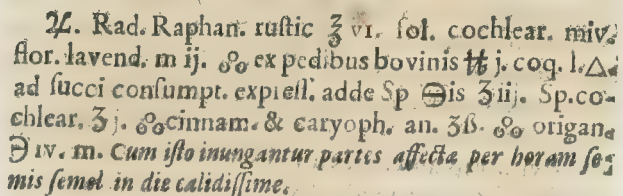 ♃. Rad. Raphan. ruſtic ℥ vı. fol. cochlear. miv.
flor. lavend. m ij. o°o ex pedibus bovinis ℔ j. coq. l.🜂.
ad ſucci conſumpt. expreſſ. adde Sp 🜔is ℥iij. Sp.co-
chlear. ℥j. o°ocinnam. & caryoph. an. ʒß. o°o origan.
℈ ıv. m. Cum iſto inungantur partes affectæ per horam ſe-
mis ſemel in die calidiſſime.